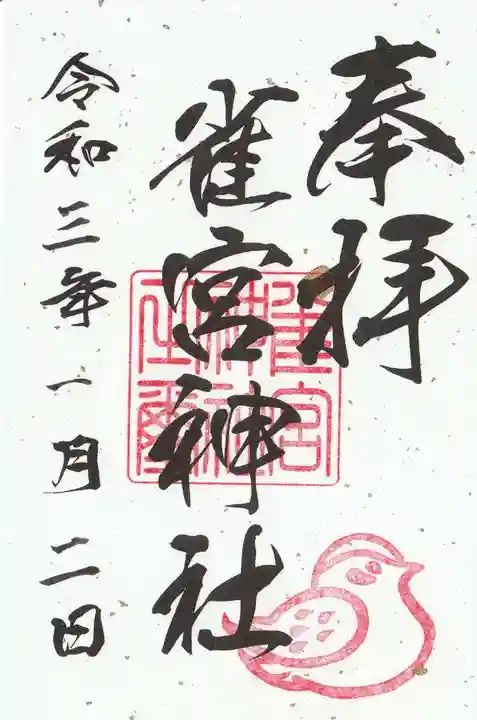 奉拝
雀宮神社
雀宮
神社
令和三年一月二日